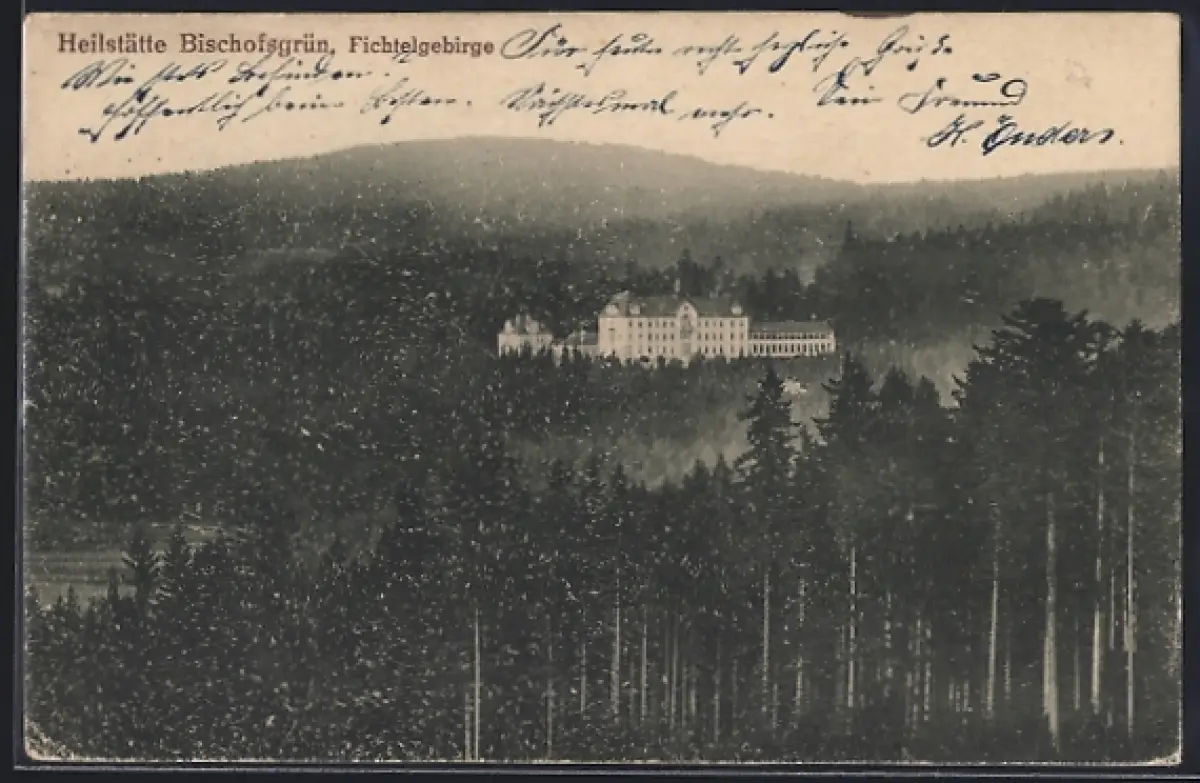 Heilstätte Bischofsgrün, Fichtelgebirge
Für heute recht herzliche Grüße
Wie stets Befinden.
hoffentlich beim Besten. Nächstesmal mehr.
Dein Freund
H. Enders.